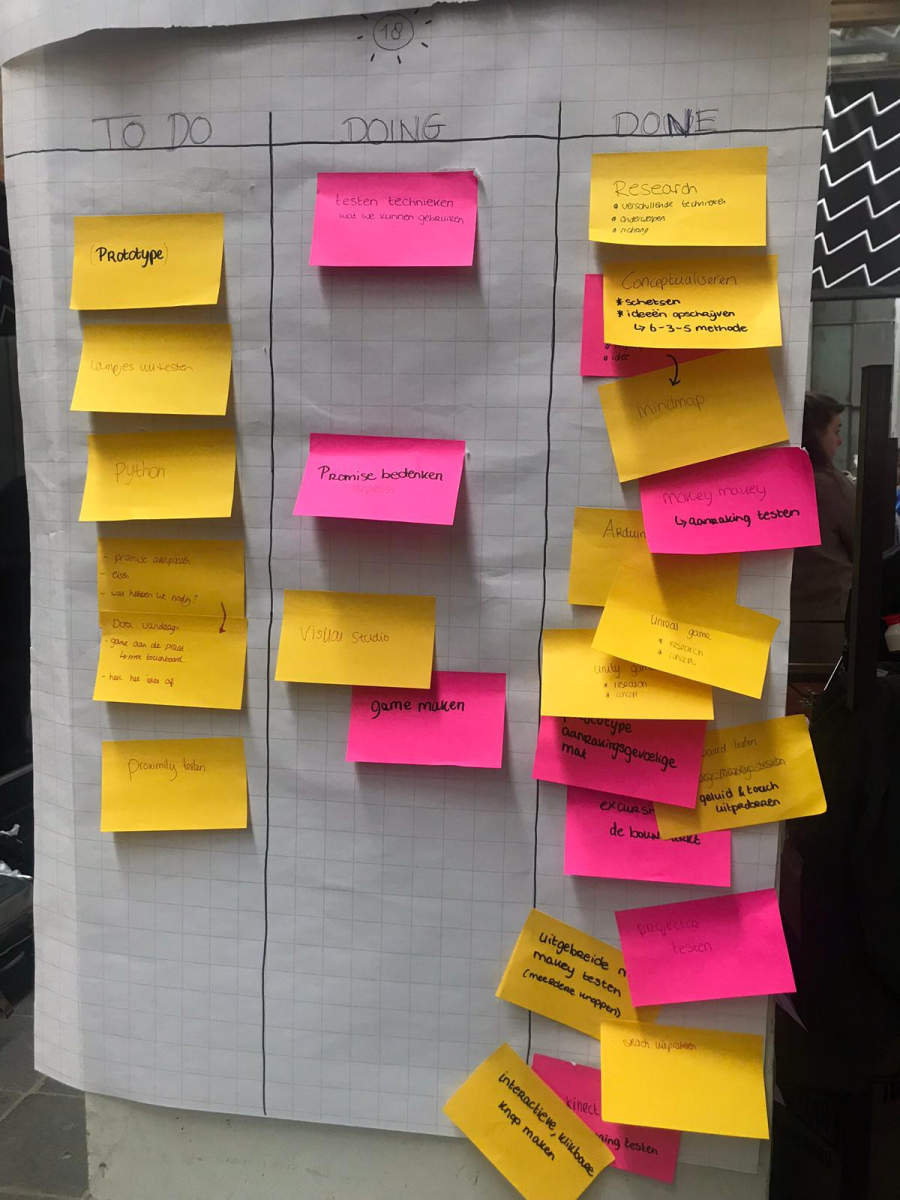 18
TO DO
(Prototype)
Lampjes uittesten
Python
- promise aanpassen
- eisen
- wat hebben we nodig?
Doel vandaag:
- game aan de praat
- hoe het idee af
Proximity testen
DOING
testen technieken
wat we kunnen gebruiken
Promise bedenken
Visual Studio
game maken
DONE
Research
verschillende technieken
onderwerpen
Conceptualiseren
* schetsen
* ideeën opschrijven
↳ 6-3-5 methode
idee
mindmap
Makey makey
↳ aanraking testen
Arduin
unreal game
* research
* concept
unity gam
* research
* concept
prototype
aanrakingsgevoelige
mat
board testen
makey testen
geluid & touch
uitproberen
excursi
de bouwmarkt
projector
testen
Uitgebreide m
makey testen
(meerdere knoppen)
uitproberen
kinect
ing testen
interactieve, klikbare
knop maken